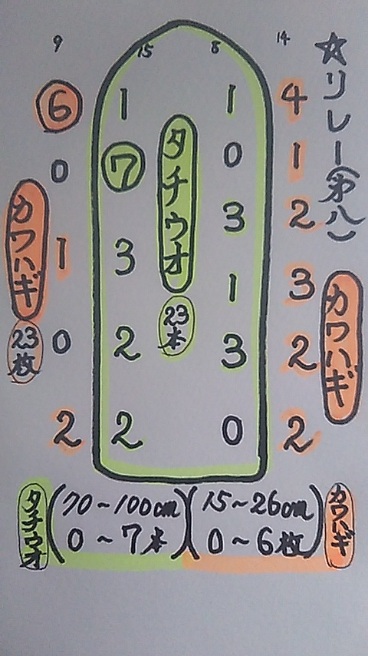 ☆リレー(第八)
9 15 8 14
6 1 1 4
0 7 0 1
1 3 3 2
0 2 1 3
2 2 3 2
0 2
タチウオ
23本
カワハギ
23枚
カワハギ
タチウオ (70~100cm) (15~26cm) カワハギ
0~7本 0~6枚